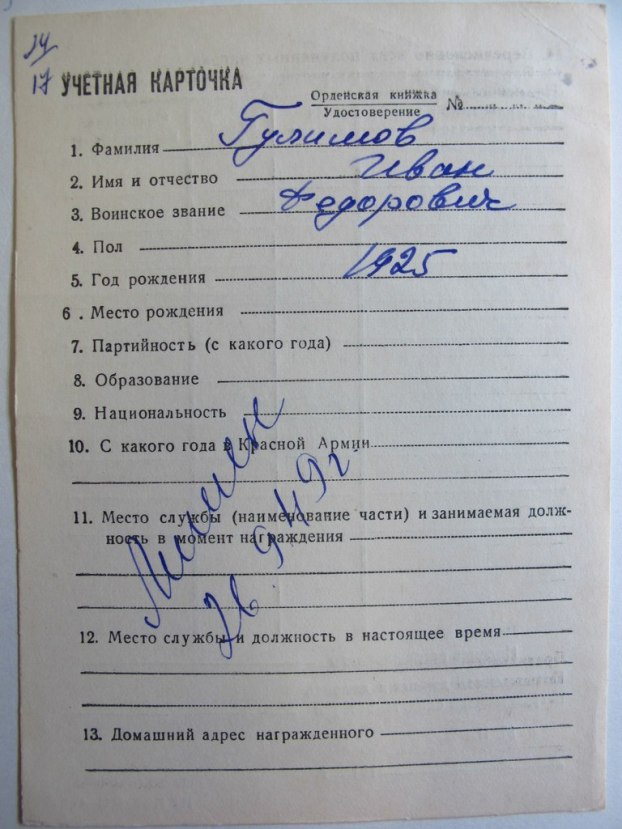 24
17 УЧЕТНАЯ КАРТОЧКА
Орденская книжка
Удостоверение №
1. Фамилия Гулимов
2. Имя и отчество Иван
3. Воинское звание Федорович
4. Пол
5. Год рождения 1925
6. Место рождения
7. Партийность (с какого года)
8. Образование
9. Национальность
10. С какого года в Красной Армии
11. Место службы (наименование части) и занимаемая долж-
ность в момент награждения
Лишен
26 9 49 г.
12. Место службы и должность в настоящее время
13. Домашний адрес награжденного